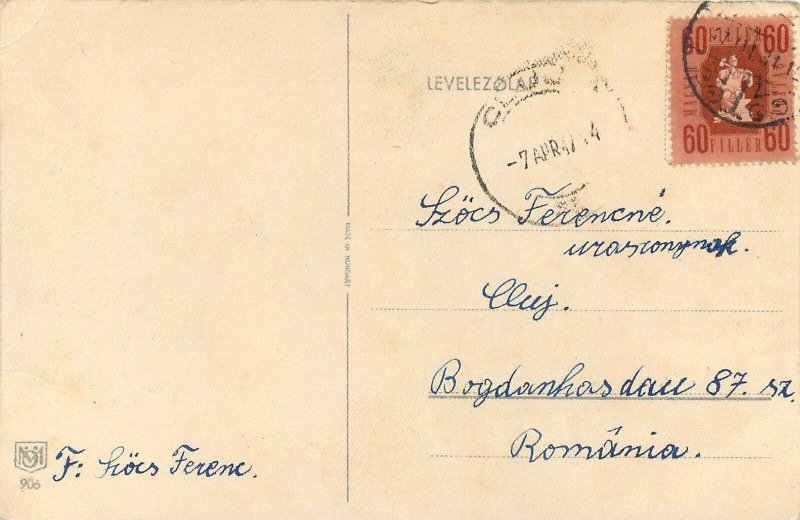 LEVELEZŐLAP
60 FILLÉR 60
60 FILLÉR 60
-7 APR 47
Szőcs Ferencné.
uraszonynak.
Cluj.
Bogdanhasdau 87. sz.
România.
MADE IN HUNGARY
F: Szőcs Ferenc.
906